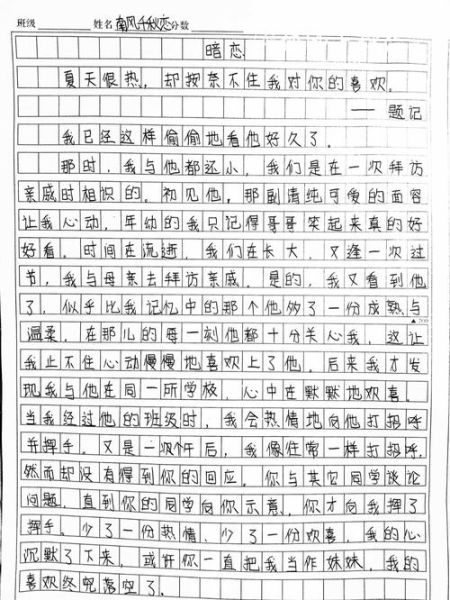 班级 姓名 南风千秋恋 分数
暗恋
夏天很热，却按奈不住我对你的喜欢。
——题记
我已经这样偷偷地看他好久了。
那时，我与他都还小，我们是在一次拜访
亲戚时相识的。初见他，那副清纯可爱的面容
让我心动，年幼的我只记得哥哥笑起来真的好
好看。时间在流逝，我们在长大，又逢一次过
节，我与母亲去拜访亲戚。是的，我又看到他
了，似乎比我记忆中的那个他够了一份成熟与
▲200
温柔，在那儿的每一刻他都十分关心我，这让
我止不住心动慢慢地喜欢上了他。后来我才发
现我与他在同一所学校，心中在默默地欢喜。
当我经过他的班级时，我会热情地向他打招呼
并挥手。又是一次午后，我像往常一样打招呼，
然而却没有得到你的回应。你与其它同学谈论
问题，直到你的同学向你示意，你才向我挥了
挥手。少了一份热情，少了一份欢喜，我的心
沉默了下来，或许你一直把我当作妹妹，我的
喜欢终究落空了。